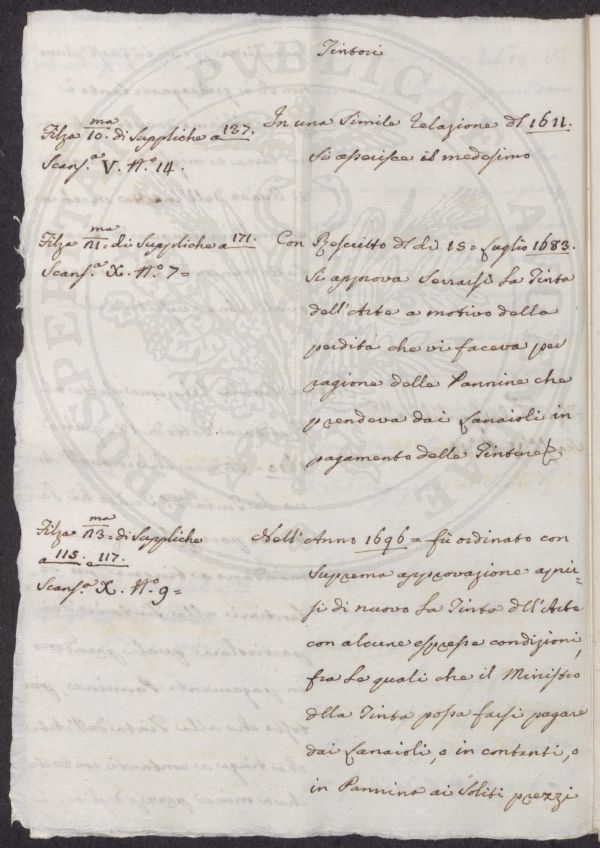 Tintori
Filza 10.ma di Suppliche a 137.
Scans.a V. N.o 14.
In una Simile Relazione dl 1611.
si asserisce il medesimo
Filza 11.ma = di Suppliche a 171.
Scans.a X. N.o 7 =
Con Rescritto dl dì 15 = Luglio 1683.
si approva Serrarsi La Tinta
dell'Arte a motivo della
perdita che vi faceva per
ragione delle Pannine che
prendeva dai Lanaioli in
pagamento delle Tinture
Filza 13.ma = di Suppliche
a 115. e 117.
Scans.a X. N.o 9 =
Nell'Anno 1696 = fù ordinato con
Suprema approvazione aprir-
si di nuovo La Tinta dll'Arte
con alcune espresse condizioni,
fra Le quali che il Ministro
dlla Tinta possa farsi pagare
dai Lanaioli, o in contanti, o
in Pannine ai Soliti prezzi
PROSPERITATI PUBLICAE